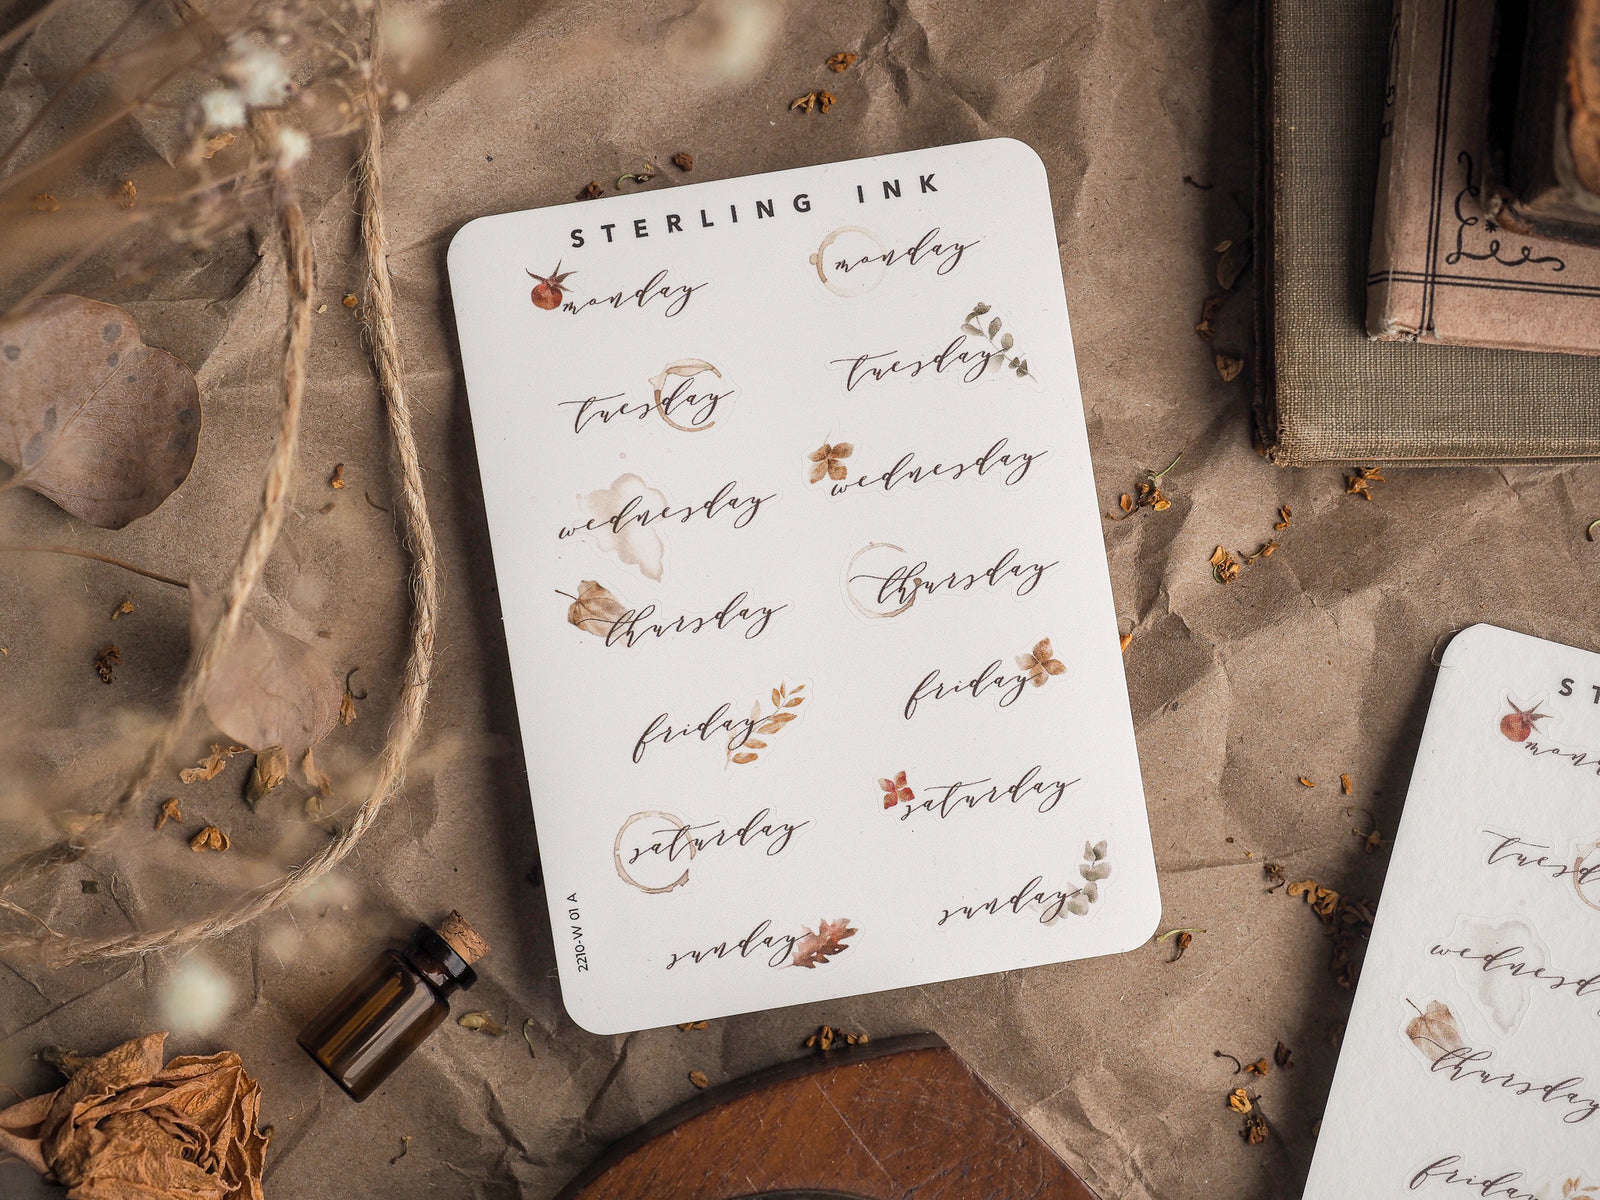 STERLING INK
monday
monday
tuesday
tuesday
wednesday
wednesday
thursday
thursday
friday
friday
saturday
saturday
sunday
sunday
2210-W 01 A
Lees
thursday